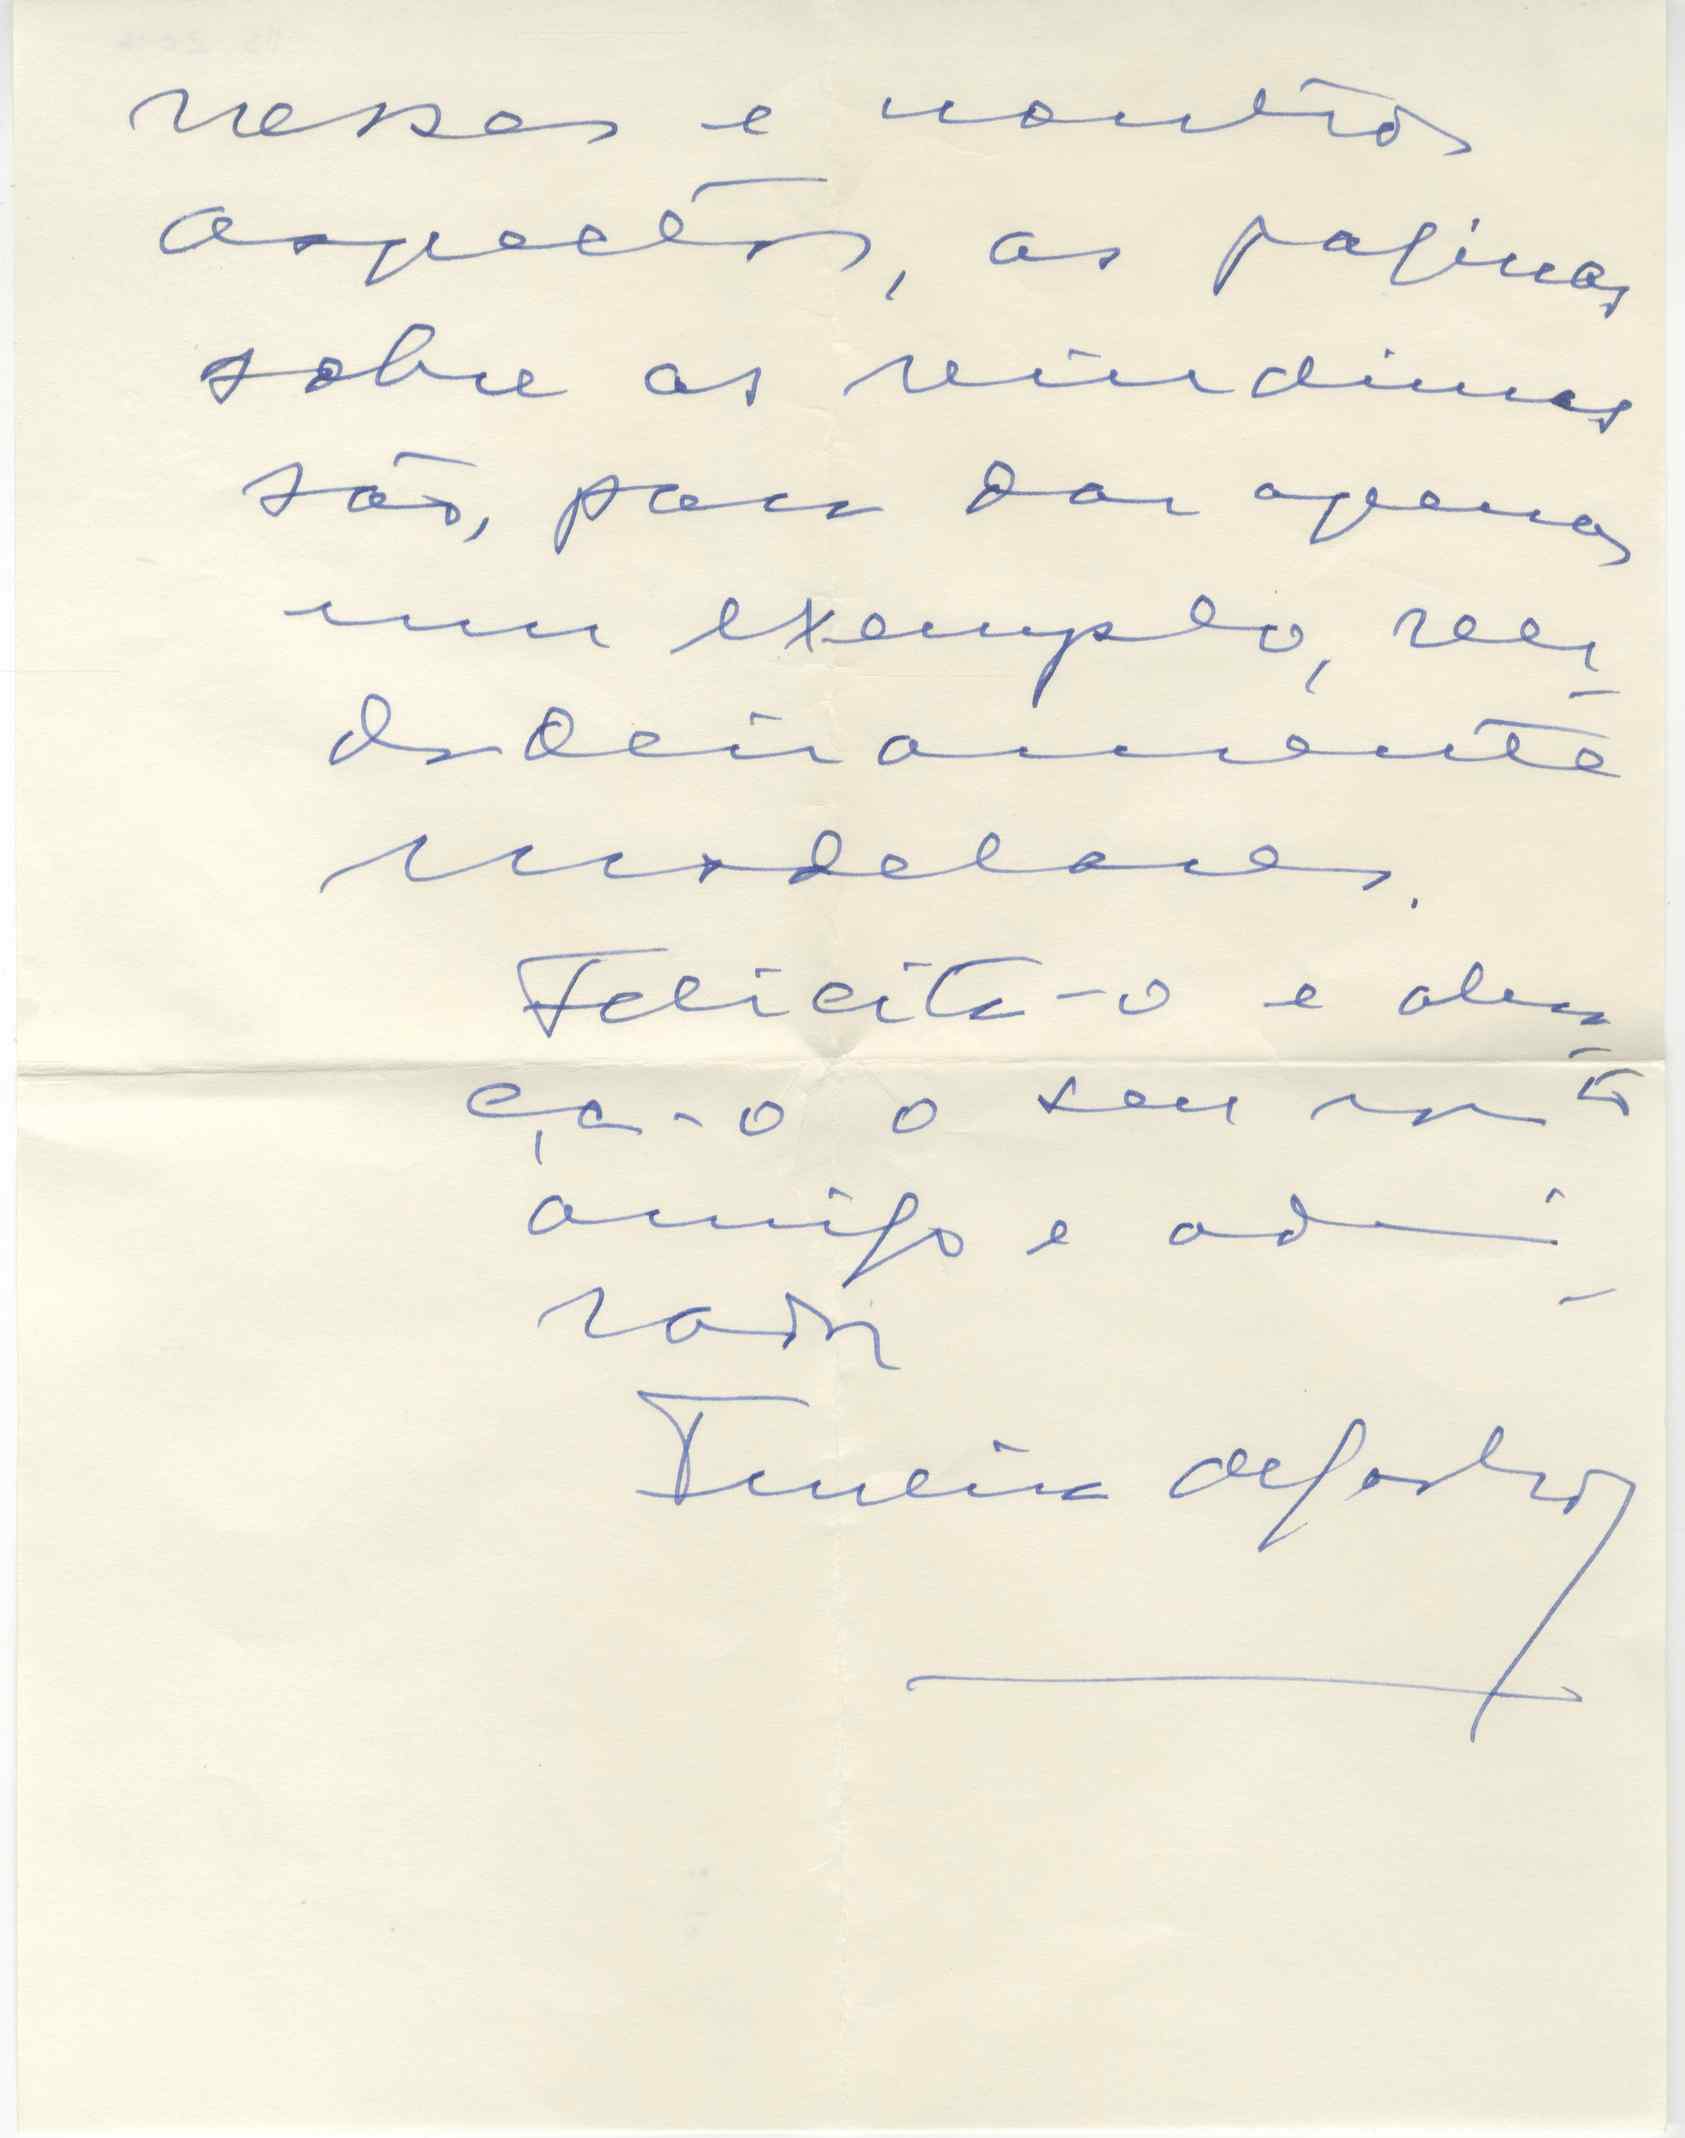 nesses e noutros
aspectos, as paginas
sobre as vindimas
são, para dar apenas
um exemplo, ver-
dadeiramente
modelares.
Felicita-o e abra-
ça-o o seu mtº
amigo e admi-
rador
Ferreira de Castro